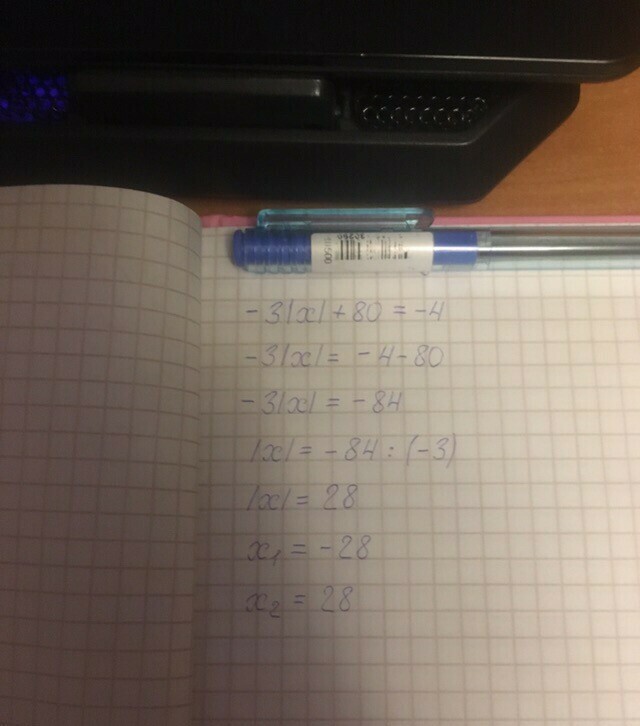 -3|x| + 80 = -4
-3|x| = -4-80
-3|x| = -84
|x| = -84 : (-3)
|x| = 28
x₁ = -28
x₂ = 28